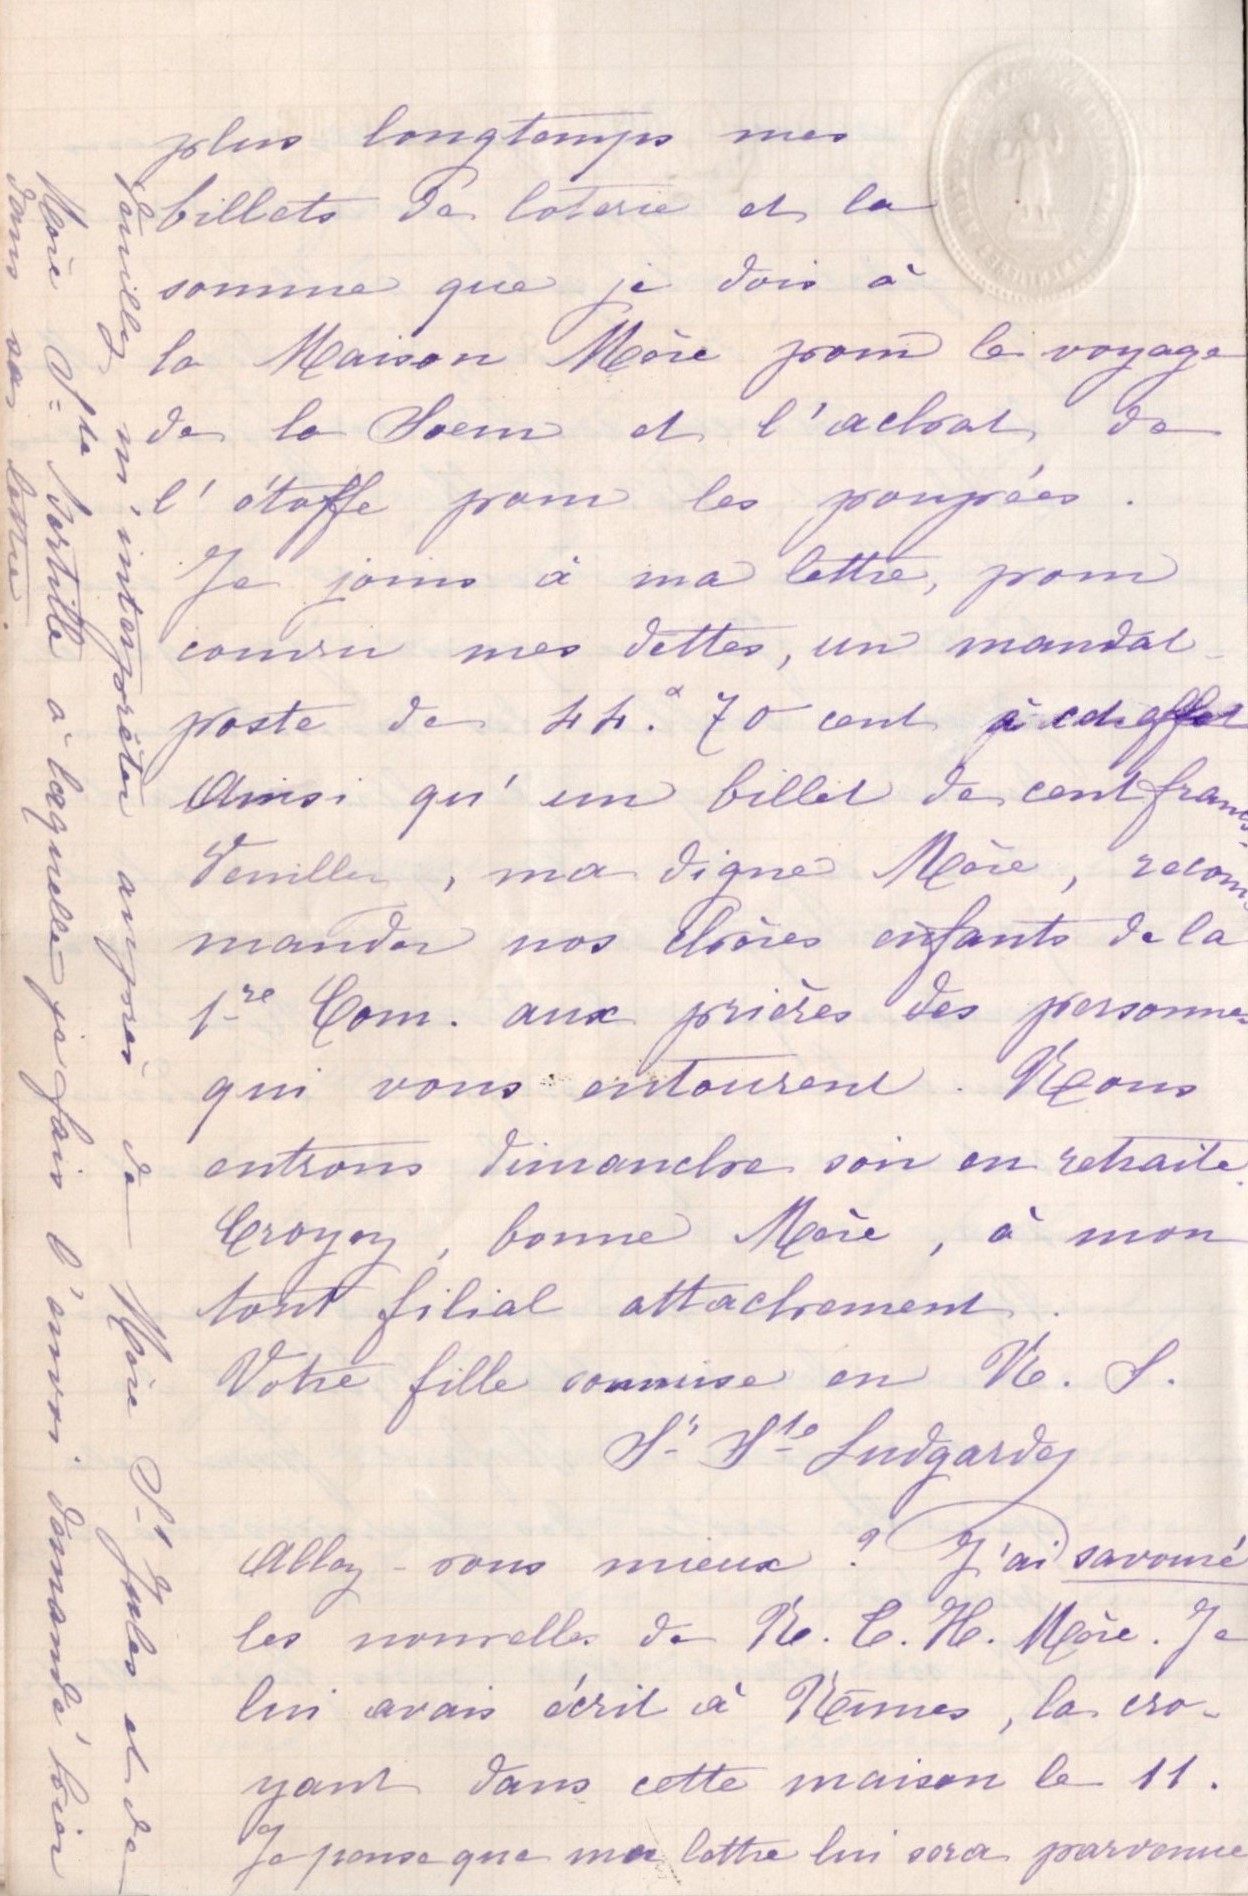 plus longtemps mes
billets de loterie et la
somme que je dois à
la Maison Mère pour le voyage
de la Soeur et l'achat de
l'étoffe pour les poupées.
Je joins à ma lettre, pour
couvrir mes dettes, un mandat-
poste de 44. 70 cent
Ainsi qu'un billet de cent francs.
Veuillez, ma digne Mère, recom
mander nos chères enfants de la
1re Com. aux prières des personnes
qui vous entourent. Nous
entrons dimanche soir en retraite.
Croyez, bonne Mère, à mon
tout filial attachement.
Votre fille soumise en N. S.
Sr Ste Ludgarde
Allez-vous mieux? J'ai savouré
les nouvelles de N. C. H. Mère. Je
lui avais écrit à Nîmes, la cro-
yant dans cette maison le 11.
Je pense que ma lettre lui sera parvenue
Veuillez m'interpréter auprès de Mère St Jules et de
Mère Ste à laquelle je fais l'envoi demandé hier
dans sa lettre.